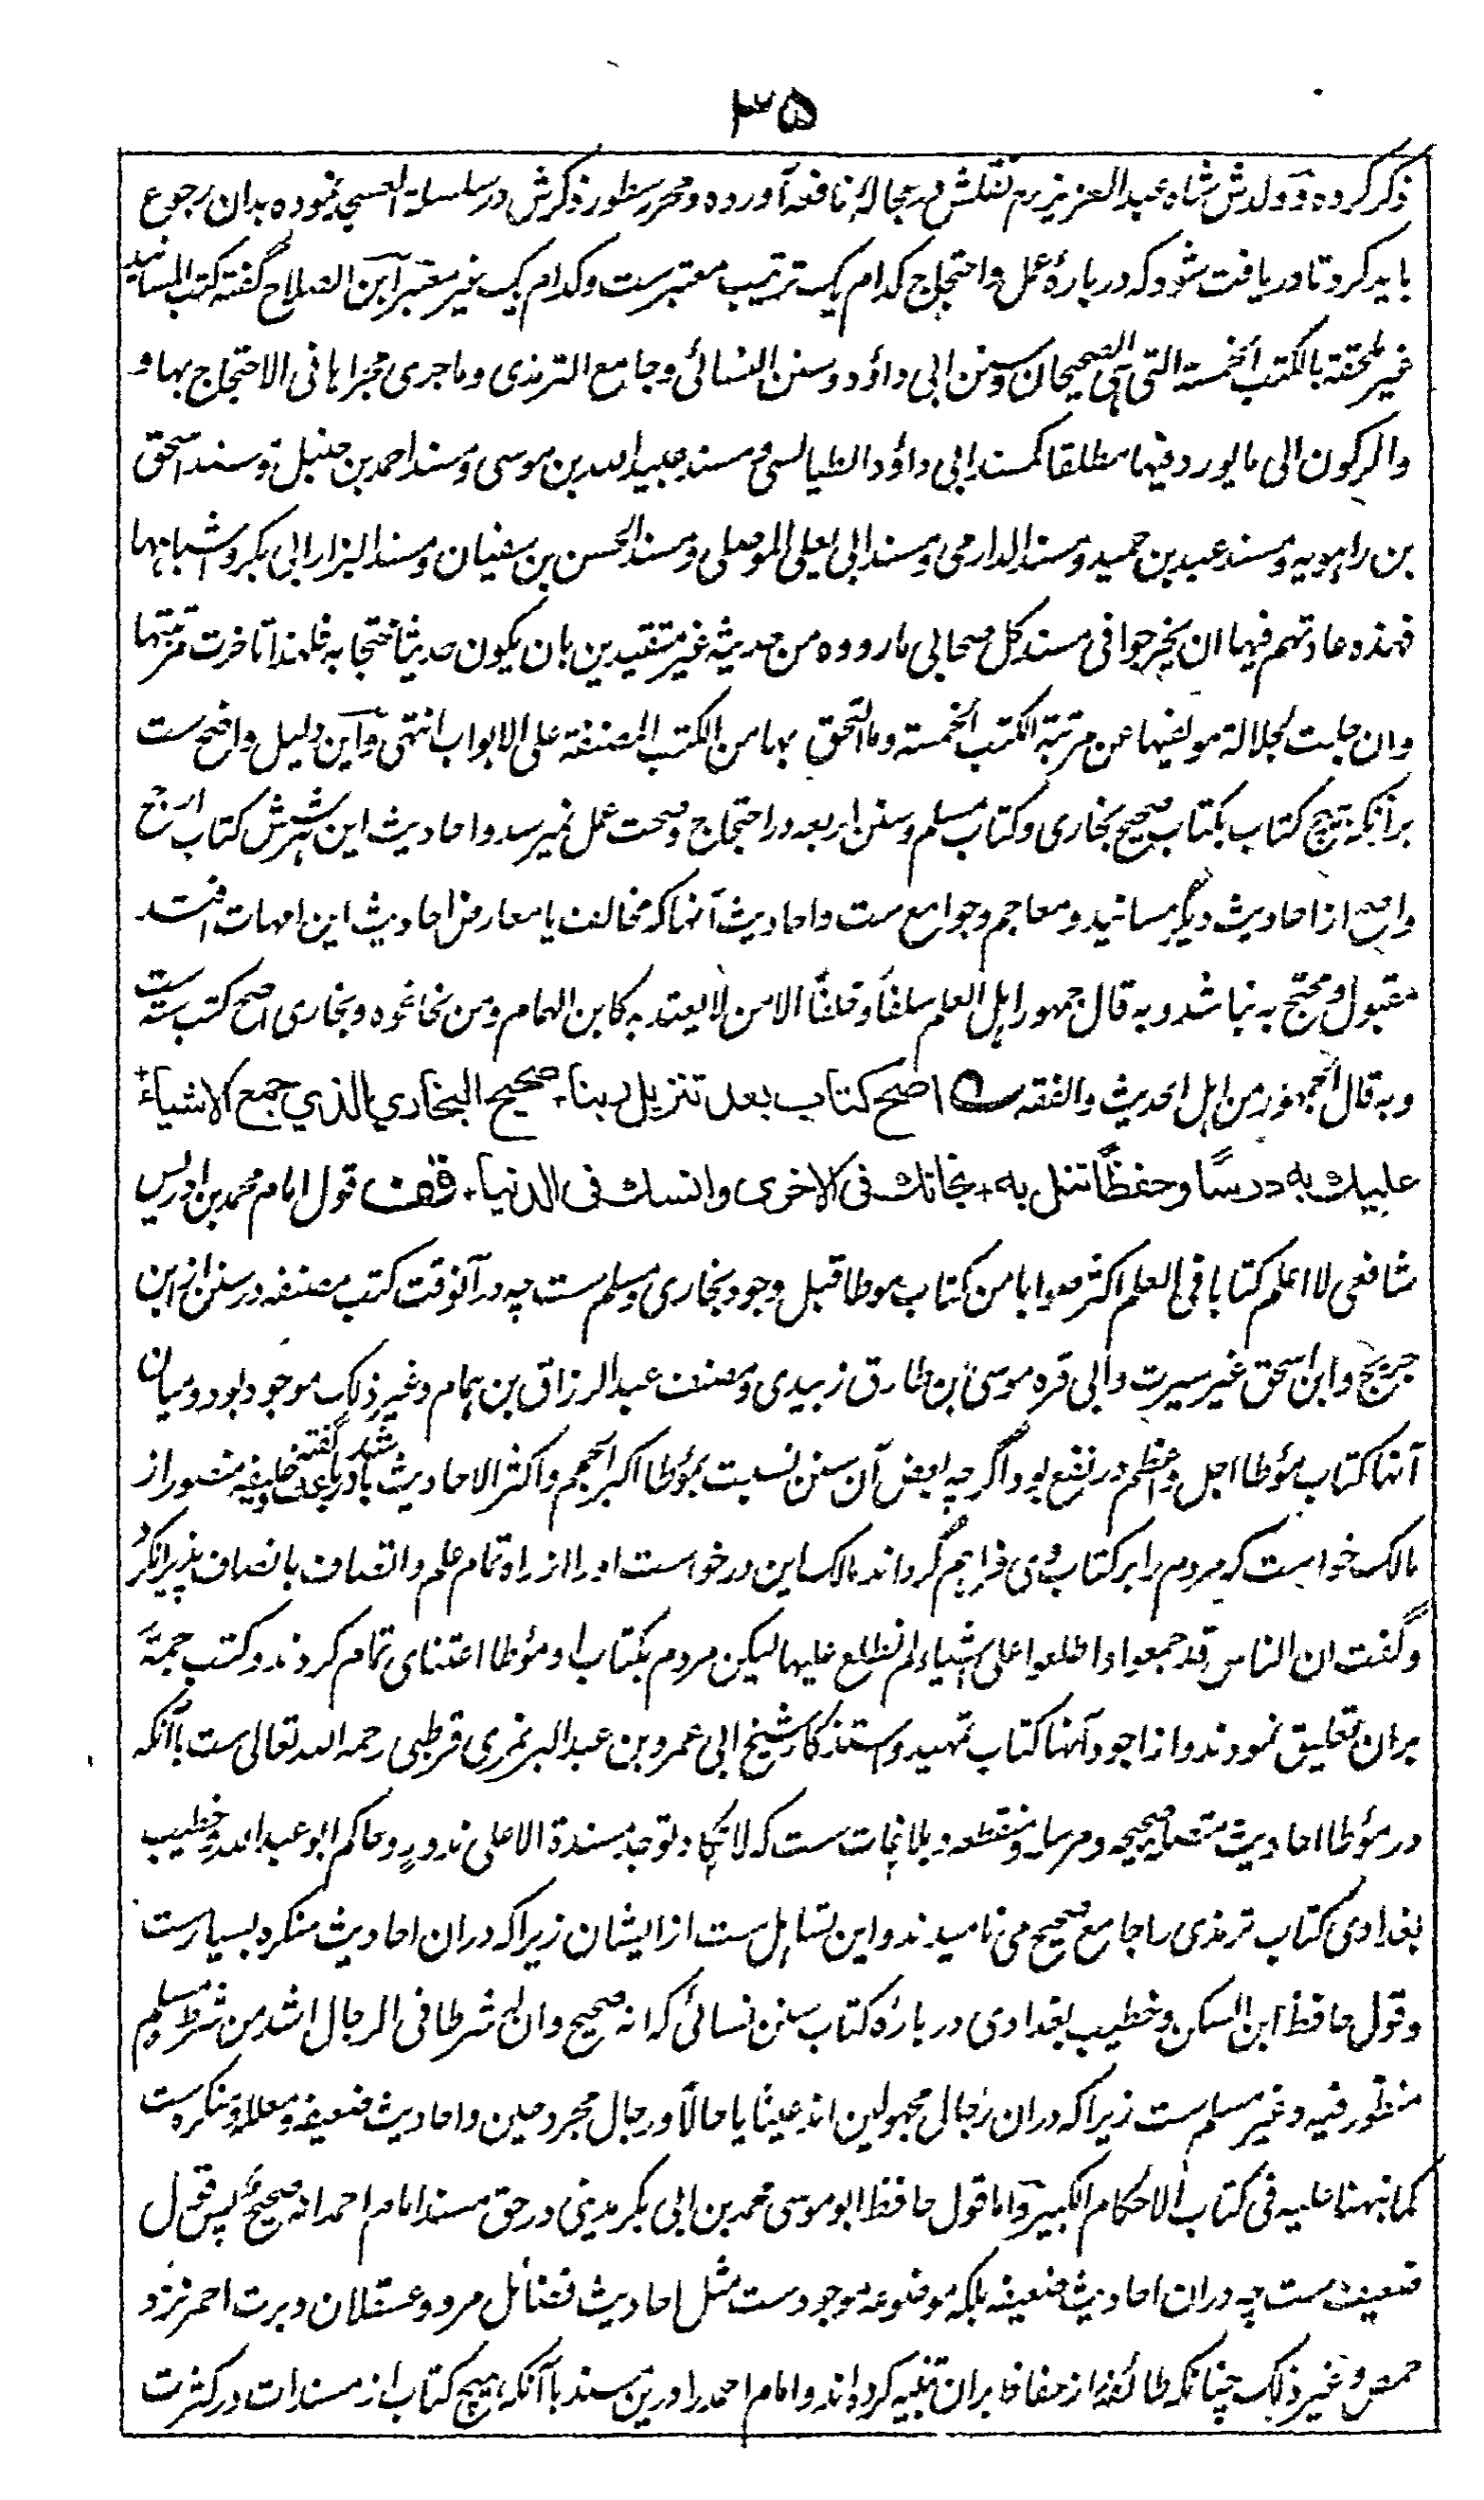 ۳۵
ذکر کرده و ولدش شاه عبد العزیز رح نقلش در عجالۀ نافعه آورده و محرر سطور ذکرش در سلسلة العسجد نموده بدان رجوع
باید کرد تا دریافت شود که در بارۀ عمل و احتجاج کدام یک ترتیب معتبرست و کدام یک غیر معتبر ابن الصلاح گفته کتب المسانید
غیر ملتحقة بالکتب الخمسة التی هی الصحیحان و سنن ابی داؤد و سنن النسائی و جامع الترمذی و ما جری مجراها فی الاحتجاج بها و
والرکون الی ما یورد فیها مطلقا کمسند ابی داؤد الطیالسی و مسند عبید الله بن موسی و مسند احمد بن حنبل و مسند اسحق
بن راهویه و مسند عبد بن حمید و مسند الدارمی و مسند ابی یعلی الموصلی و مسند الحسن بن سفیان و مسند البزار ابی بکر و اشباهها
فهذه عادتهم فیها ان یخرجوا فی مسند کل صحابی ما رووه من حدیثه غیر متقیدین بان یکون حدیثا محتجا به فلهذا تاخرت مرتبتها
وان جلت لجلالة مؤلفیها عن مرتبة الکتب الخمسة وما التحق بها من الکتب المصنفة علی الابواب انتهی و این دلیل واضح ست
بر آنکه هیچ کتاب بکتاب صحیح بخاری و کتاب مسلم و سنن اربعه در احتجاج و صحت عمل نمیرسد و احادیث این هر شش کتاب ارجح
و اصح از احادیث دیگر مسانید و معاجم و جوامع ست و احادیث آنها که مخالف یا معارض احادیث این امهات افتد
مقبول و محتج به نباشد و به قال جمهور اهل العلم سلفاً و خلفاً الا من لا یعتد به کابن الهمام و من نحا نحوه و بخاری اصح کتب سته ست
و به قال الجمهور من اهل الحدیث والفقه ؎ اصح کتاب بعد تنزیل ربنا + صحیح البخاري الذي جمع الاشیاء +
علیك به درسًا وحفظًا تنل به + نجاتك فی الاخری وانسك فی الدنیا + قف قول امام محمد بن ادریس
شافعی لا اعلم کتابا فی العلم اکثر صوابا من کتاب موطا قبل وجود بخاری و مسلم ست چه در آنوقت کتب مصنفه در سنن از ابن
جریج و ابن اسحق غیر سیرت و ابی قره موسی بن طارق زبیدی و مصنف عبد الرزاق بن همام و غیر ذلک موجود بود و میان
آنها کتاب مؤطا اجل و اعظم در نفع بود اگرچه بعض آن سنن نسبت بمؤطا اکبر الحجم و اکثر الاحادیث باشد گفته خلیفه منصور از
مالک خواست که مردم را بر کتاب وی فراهم گرداند مالک این درخواست او را از راه تمام علم و اتصاف بانصاف پذیرا نکرد
و گفت ان الناس قد جمعوا و اطلعوا علی اشیاء لم نطلع علیها لیکن مردم بکتاب او مؤطا اعتنای تمام کردند و کتب جمة
بران تعلیق نمودند و از اجود آنها کتاب تمهید و استذکار شیخ ابی عمرو بن عبد البر نمری قرطبی رحمه الله تعالی ست باآنکه
در مؤطا احادیث متصله صحیحه و مرسله و منقطعه و بلاغات ست که لا تکاد توجد مسندة الا علی ندور و حاکم ابو عبد الله و خطیب
بغدادی کتاب ترمذی را جامع صحیح می نامیدند و این تساهل ست از ایشان زیرا که دران احادیث منکره بسیارست
و قول حافظ ابن السکن و خطیب بغدادی در بارۀ کتاب سنن نسائی که انه صحیح وان له شرطا فی الرجال اشد من شرط مسلم
منظور فیه و غیر مسلم ست زیرا که دران رجال مجهولین اند عیناً یا حالاً و رجال مجروحین و احادیث ضعیفه و معلله و منکره ست
کما نبهنا علیه فی کتاب الاحکام الکبیر و اما قول حافظ ابو موسی محمد بن ابی بکر مدینی در حق مسند امام احمد انه صحیح پس قول
ضعیف ست چه دران احادیث ضعیفه بلکه موضوعه موجودست مثل احادیث فضائل مرو و عسقلان و برث احمر نزد
حمص و غیر ذلک چنانکه طائفه از حفاظ بران تنبیه کرده اند و امام احمد را درین مسند باآنکه هیچ کتاب از مسندات در کثرت